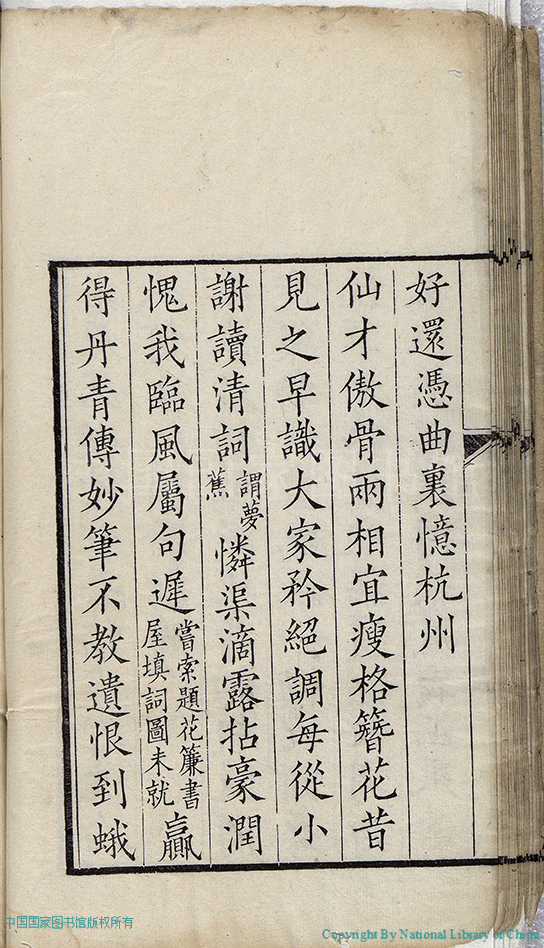 好還憑曲裏憶杭州
仙才傲骨兩相宜瘦格簪花昔
見之早識大家矜絕調每從小
謝讀清詞謂夢蕉憐渠滴露拈豪潤
愧我臨風屬句遲嘗索題花簾書屋填詞圖未就贏
得丹青傳妙筆不教遺恨到蛾
中国国家图书馆版权所有
Copyright By National Library of China